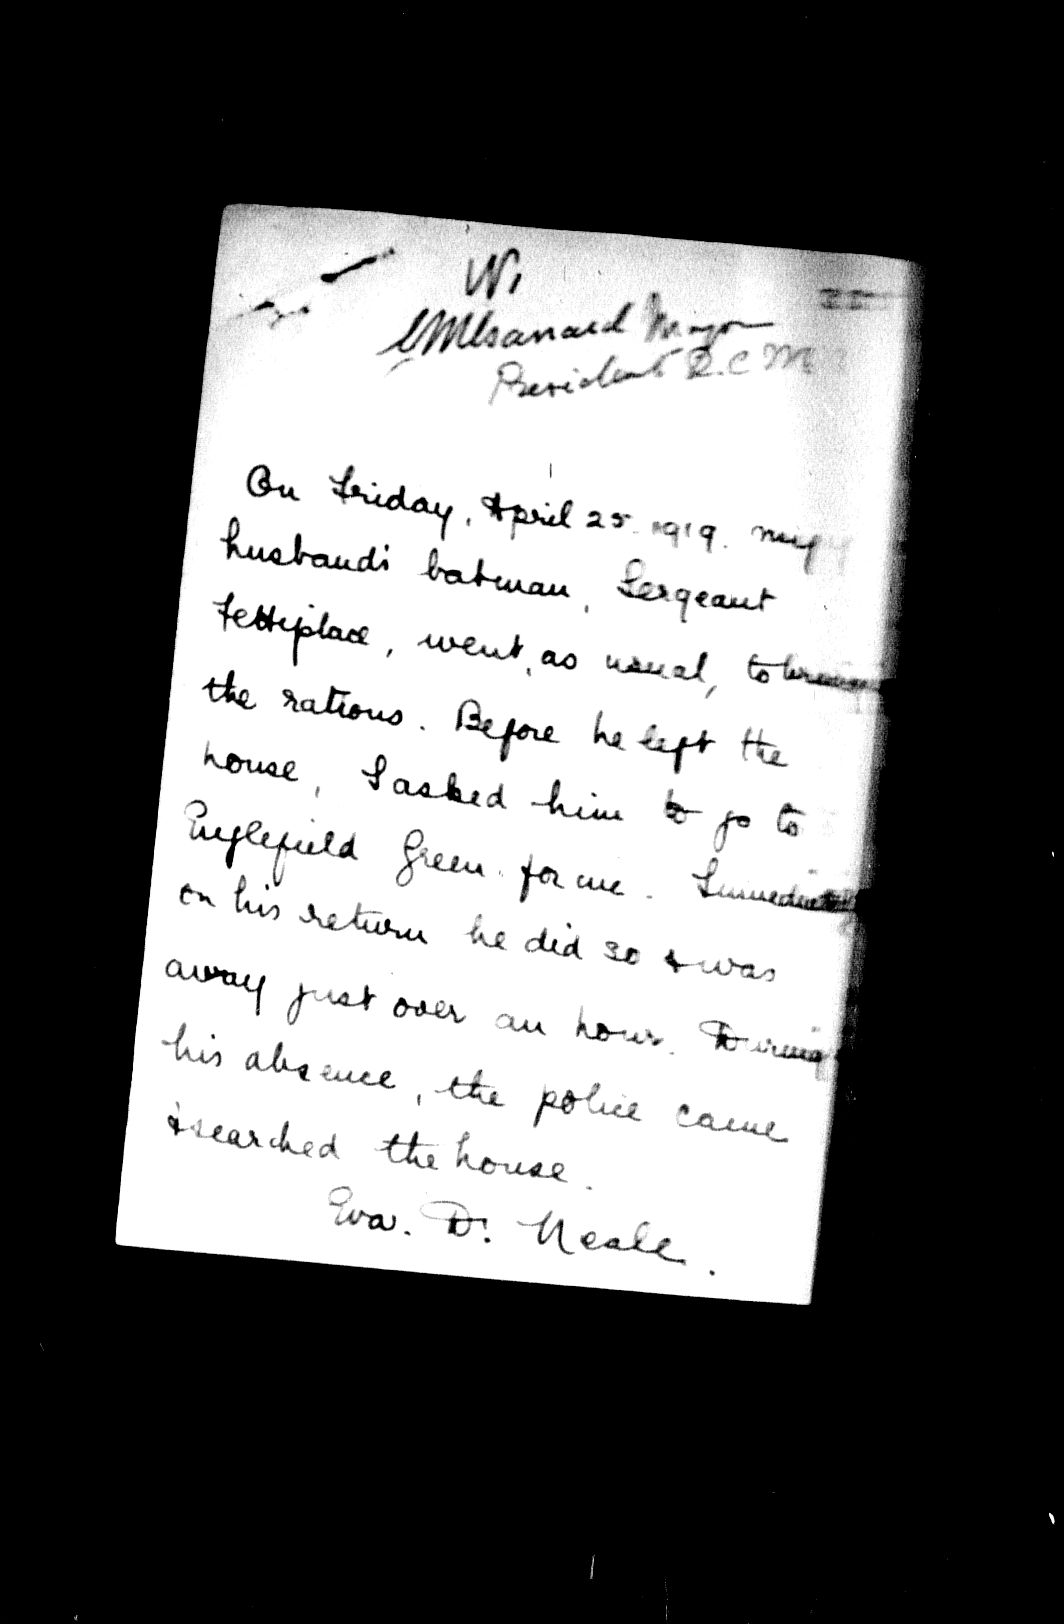 W,
Major
President D.C.M.
On Friday, April 25. 1919. my
husband's batman, Sergeant
Fettiplace, went, as usual, to bring
the rations. Before he left the
house, I asked him to go to
Englefield Green for me. Immediately
on his return he did so & was
away just over an hour. During
his absence, the police came
& searched the house.
Eva. D. Neale.